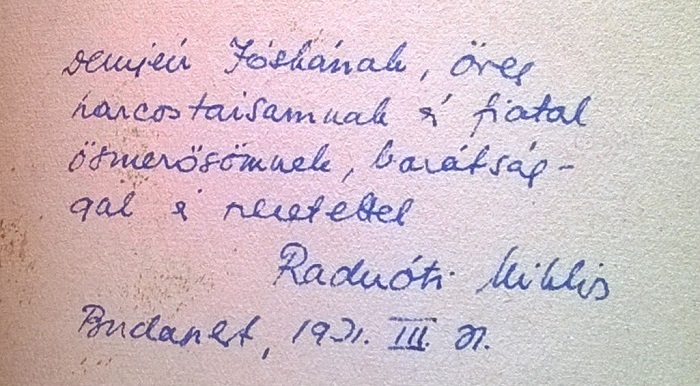 Demjén Jóskának, öreg
harcostársamnak s fiatal
ösmerősömnek, barátság-
gal s szeretettel
Radnóti Miklós
Budapest, 1931. III. 31.